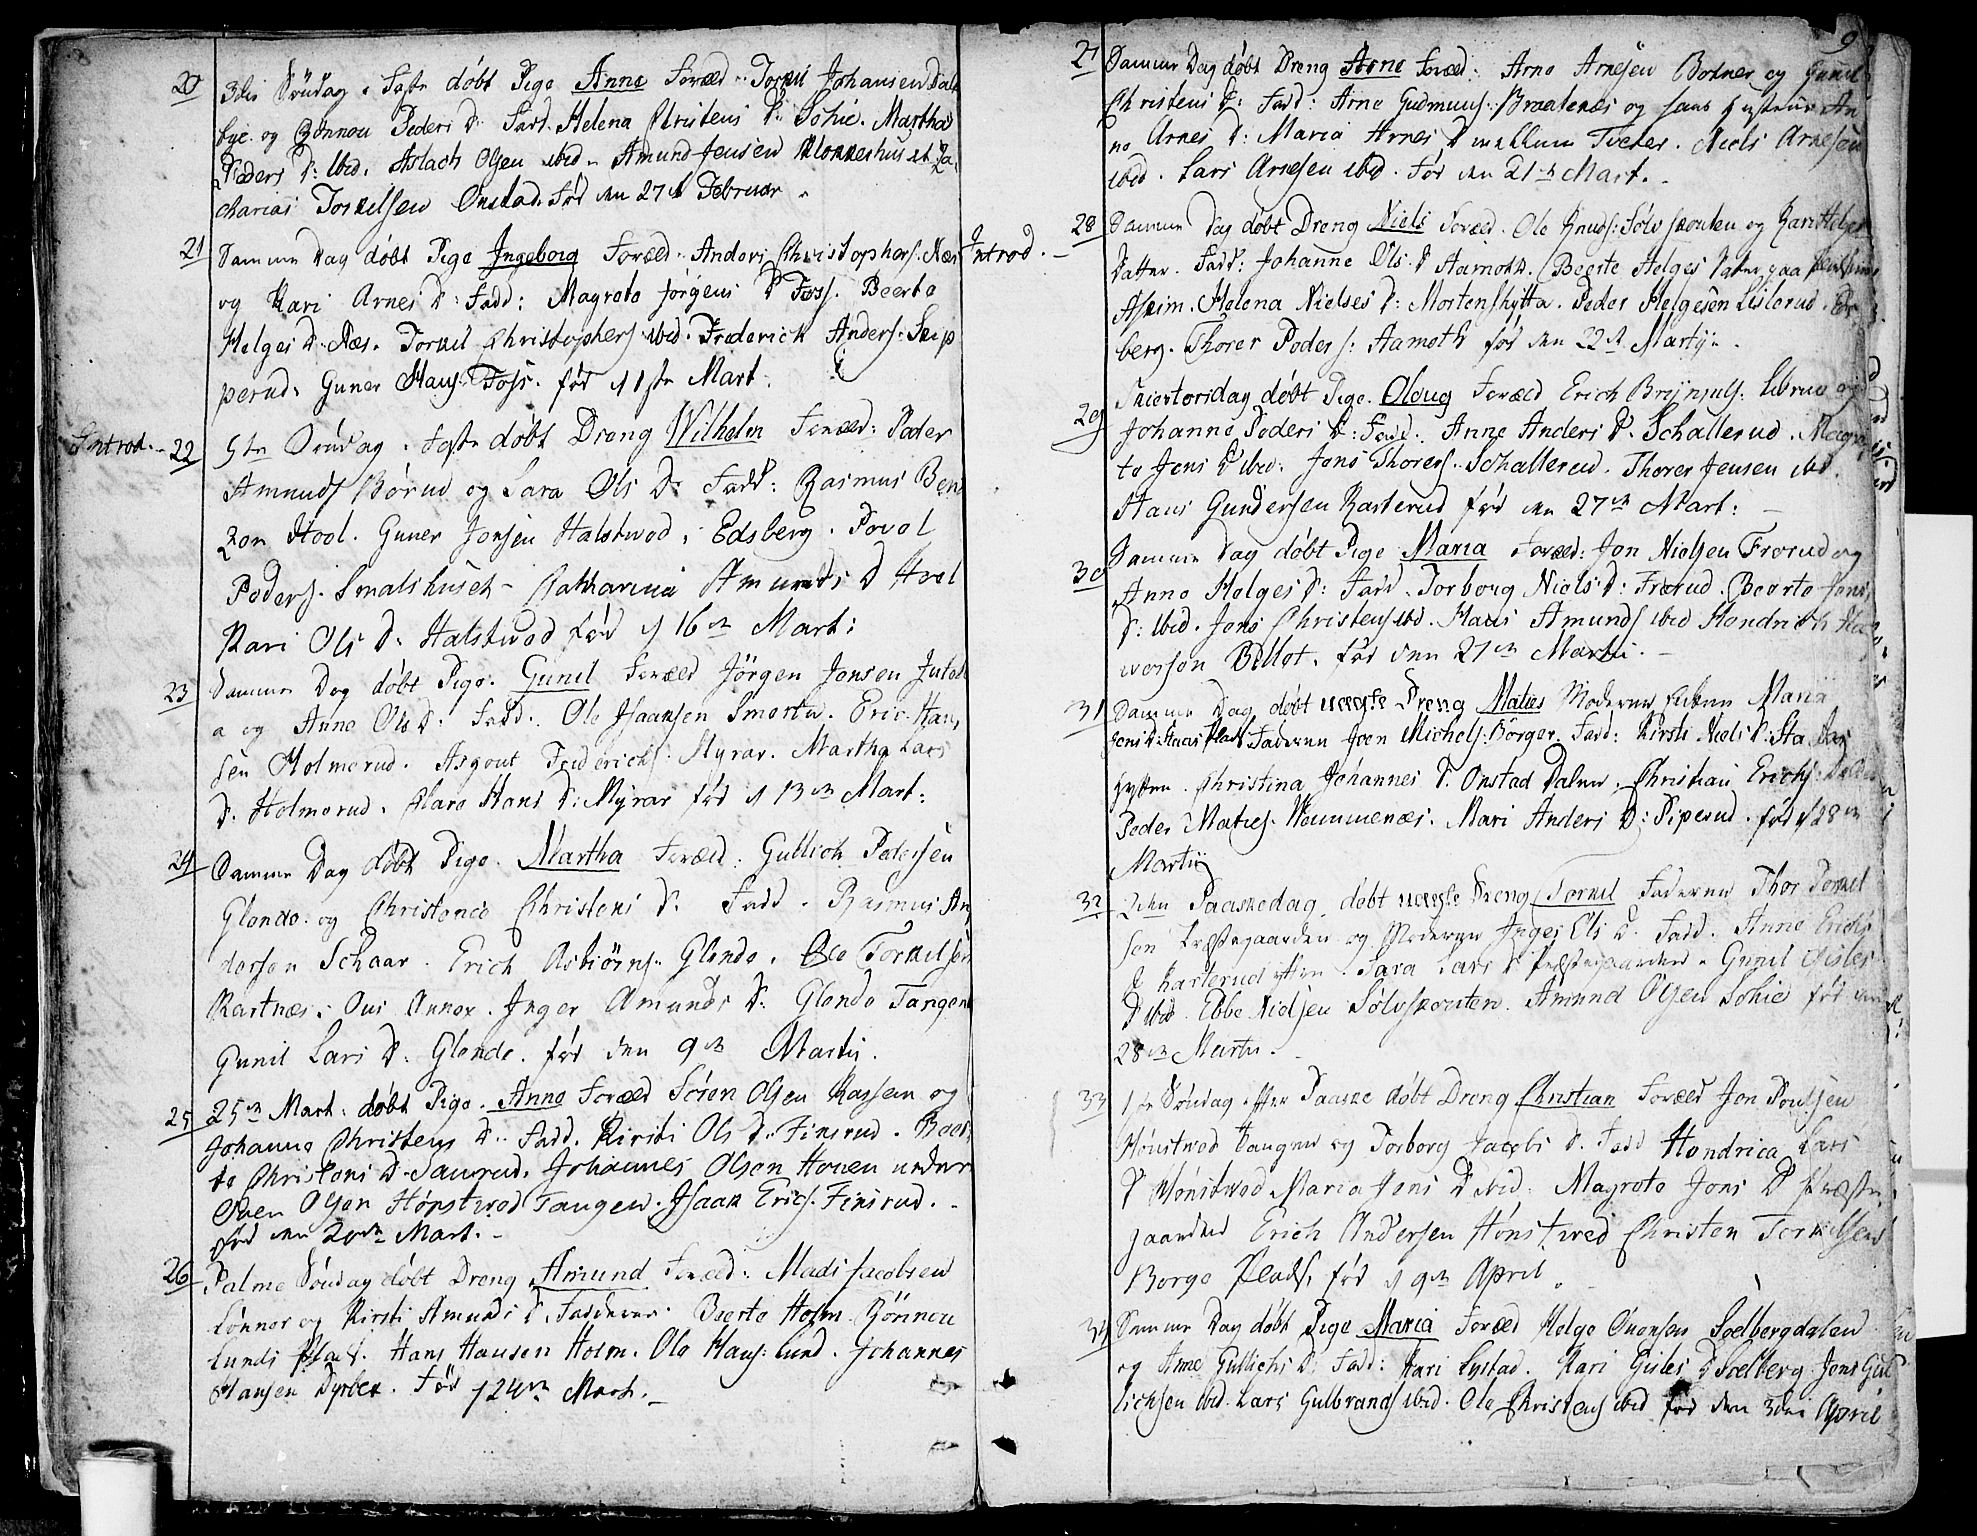 20 3die Søndag i Faste døbt Pige Anne Foræld: Torkil Johansen Dals
bye og Rønnou Peders D: Fadd. Helena Christens D: Sohie. Martha
Peders D: ibid. Aslach Olsen ibid. Amund Jensen Klokkerhuset Za-
charias Torkilsen Onstad. Fød den 27de Februar.
21 Samme Dag døbt Pige Ingeborg Foræld: Anders Christophers. Næs Introd.
og Kari Arnes D: Fadd: Magrete Jørgens D Foss. Beerte
Helges D. Næs. Torkil Christophers. ibid. Frederich Anders: Skip
perud. Guner Hans: Foss. født d 1ste Mart.
Introd. 22 5te Søndag i Faste døbt Dreng Wilhelm Foræld: Peder
Amunds Børud og Sara Ols D: Fadd: Rasmus Ben
zon Hool. Guner Jonsen Halstwed i Edsberg. Povel
Peders. Smalshuset. Catharina Amunds D Hool
Kari Ols D. Halstwed fød d 16de Mart:
23 Samme Dag døbt Pige. Gunil Foræld Jørgen Jonsen
a og Anne Ols D. Fadd: Ole Isaaksen Smertu. Eric Han
sen Holmerud. Asgout Friderichs. Myrar. Martha Lars
D. Holmerud. Clare Hans D: Myrar fød d 13de Mart:
24 Samme Dag døbt Pige. Martha Foræld: Gullich Pedersen
Glende og Christence Christens D. Fadd. Rasmus An
dersen Schaar. Erich Asbiörns. Glende. Ole Torkilsen
Kartnæs. Oui Annex. Inger Amunds D: Glende Tangen
Gunil Lars D. Glende. fød den 9de Martij.
25 25de Mart: døbt Pige. Anne Foræld Sören Olsen Kassen og
Johanne Christens D. Fadd. Kirsti Ols D. Finsrud. Beer
te Christens D. Saurud. Johannes Olsen Houen neder
Sven Olsen Hønstwed Tangen. Isaak Erics. Finsrud.
Fød den 20de Mart.
26 Palme Søndag døbt Dreng Amund Foræld: Mads Jacobsen
Lønner og Kirsti Amunds D. Fadderne: Beerte Holm. Rönnou
Lunds Plads. Hans Hansen Holm. Ole Hans. Lund. Johannes
Hansen Dyrbek. Fød d 24de Mart.
9
27 Samme Dag døbt Dreng Arne Foræld: Arne Arnesen Botner og Gunil
Christens D: Fadd: Arne Gudmuns: Braatenæs og hans Hustrue An
ne Arnes D: Maria Arnes D mellem Tveter. Niels Arnesen
ibid. Lars Arnesen ibid. Fød den 21de Mart.
28 Samme Dag døbt Dreng Niels Foræld. Ole Knuds: Sölvskouten og Kari Helges
Datter. Fadd: Johanne Ols. D Aamoth. Beerte Helges Datter paa
Askim. Helena Nielses D: Mortenshytta. Peder Helgesen Lislerud
berg. Thorer Peders: Aamoth fød den 22de Martij.
29 Skiertorsdag døbt Pige. Oloug Foræld Erich Brynjuls: Librue og
Johanne Peders D: Fadd: Anne Anders D. Schallerud. Magre
te Jens D ibid: Jens Thorers. Schallerud. Thorer Jensen ibd.
Hans Gundersen Kasterud fød den 27de Mart:
30 Samme Dag døbt Pige Maria Foræld: Jon Nielsen Frorud og
Anne Helges D: Fadd. Torborg Niels D: Frorud. Beerte Jens
D: ibid. Jens Christens ibd. Hans Amunds ibid Hendrich Ha
worsen Billet. fød den 21de Martii.
31 Samme Dag døbt uægte Dreng Maties Moderen Enken Maria
Jens D: Haas Plads Faderen Joen Michels: Börger. Fadd: Kirsti Niels D:
hytten. Christina Johannes D. Onstad Dalen. Christian Erichs: Dalen
Peder Maties. Wammenæs. Mari Anders D: Piperud. fød d 28de
Martij
32 2den Paaskedag. døbt uægte Dreng Torkil Faderen Thor Torkil
sen Præstegaarden og Moderen Inges Els D. Fadd. Anne Erichs
D Kasterud hytten. Sara Lars D Præstegaarden. Gunil Gisles
D ibid. Ebbe Nielsen Sölvskouten. Amund Olsen Sohie fød den
28de Martii.
33 1ste Søndag efter Paaske døbt Dreng Christian Foræld Jon Poulsen
Hönstwed Tangen og Torborg Jacobs D. Fadd Hendrica Lars
D Hönstwed Maria Jens D ibid: Magrete Jons D Præste
gaarden Erich Andersen Hönstwed Christen Torkelsen
Borge Plads. fød d 9de April.
34 Samme Dag døbt Pige Maria Foræld Helge Evensen Soelbergdalen
og Anne Gullichs D. Fadd: Kari Lystad. Kari Gisles D Soelberg Jens Gul
lichsen ibid. Lars Gulbrands ibid. Ole Christens ibid fød den 3die April